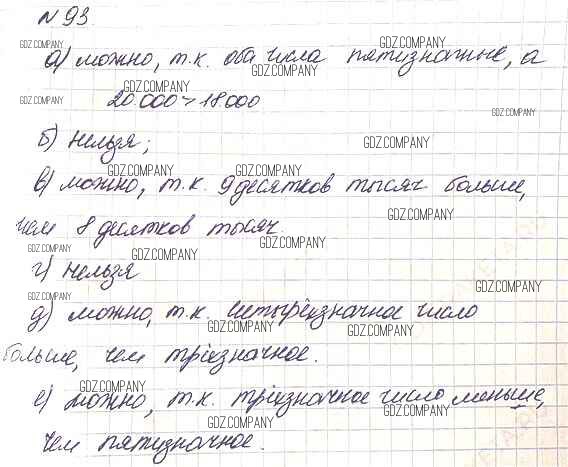 N 93
GDZ.COMPANY GDZ.COMPANY
а) можно, т.к. оба числа пятизначные, а
GDZ.COMPANY
GDZ.COMPANY GDZ.COMPANY
20.000 > 18 000
GDZ.COMPANY
б) нельзя;
GDZ.COMPANY
GDZ.COMPANY GDZ.COMPANY
в) можно, т.к. 9 десятков тысяч больше,
GDZ.COMPANY
чем 8 десятков тысяч.
GDZ.COMPANY GDZ.COMPANY GDZ.COMPANY
г) нельзя
GDZ.COMPANY
GDZ.COMPANY
д) можно, т.к. четырёхзначное число
GDZ.COMPANY GDZ.COMPANY
больше, чем трёхзначное.
GDZ.COMPANY
е) можно, т.к. трёхзначное число меньше,
GDZ.COMPANY GDZ.COMPANY
чем пятизначное.
GDZ.COMPANY